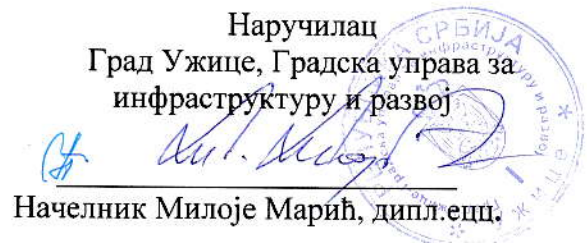 Наручилац
Град Ужице, Градска управа за
инфраструктуру и развој
Начелник Милоје Марић, дипл.ецц.
СРБИЈА